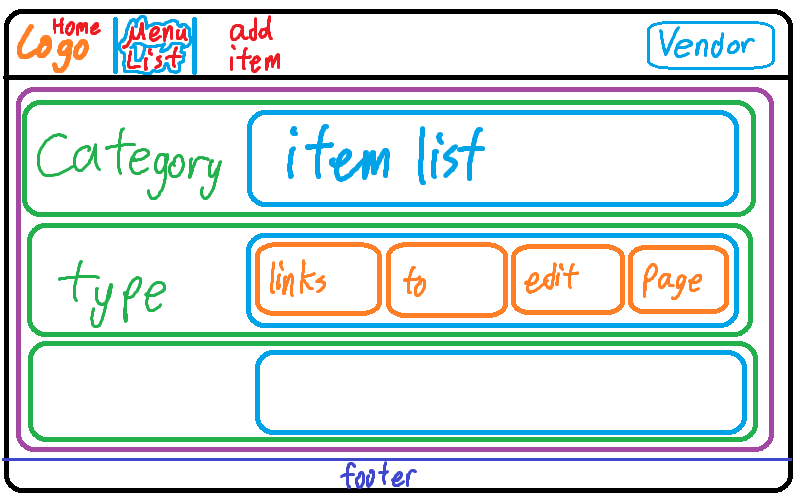 Logo Home
Menu List
add item
Vendor
Category
item list
type
links to edit Page
footer